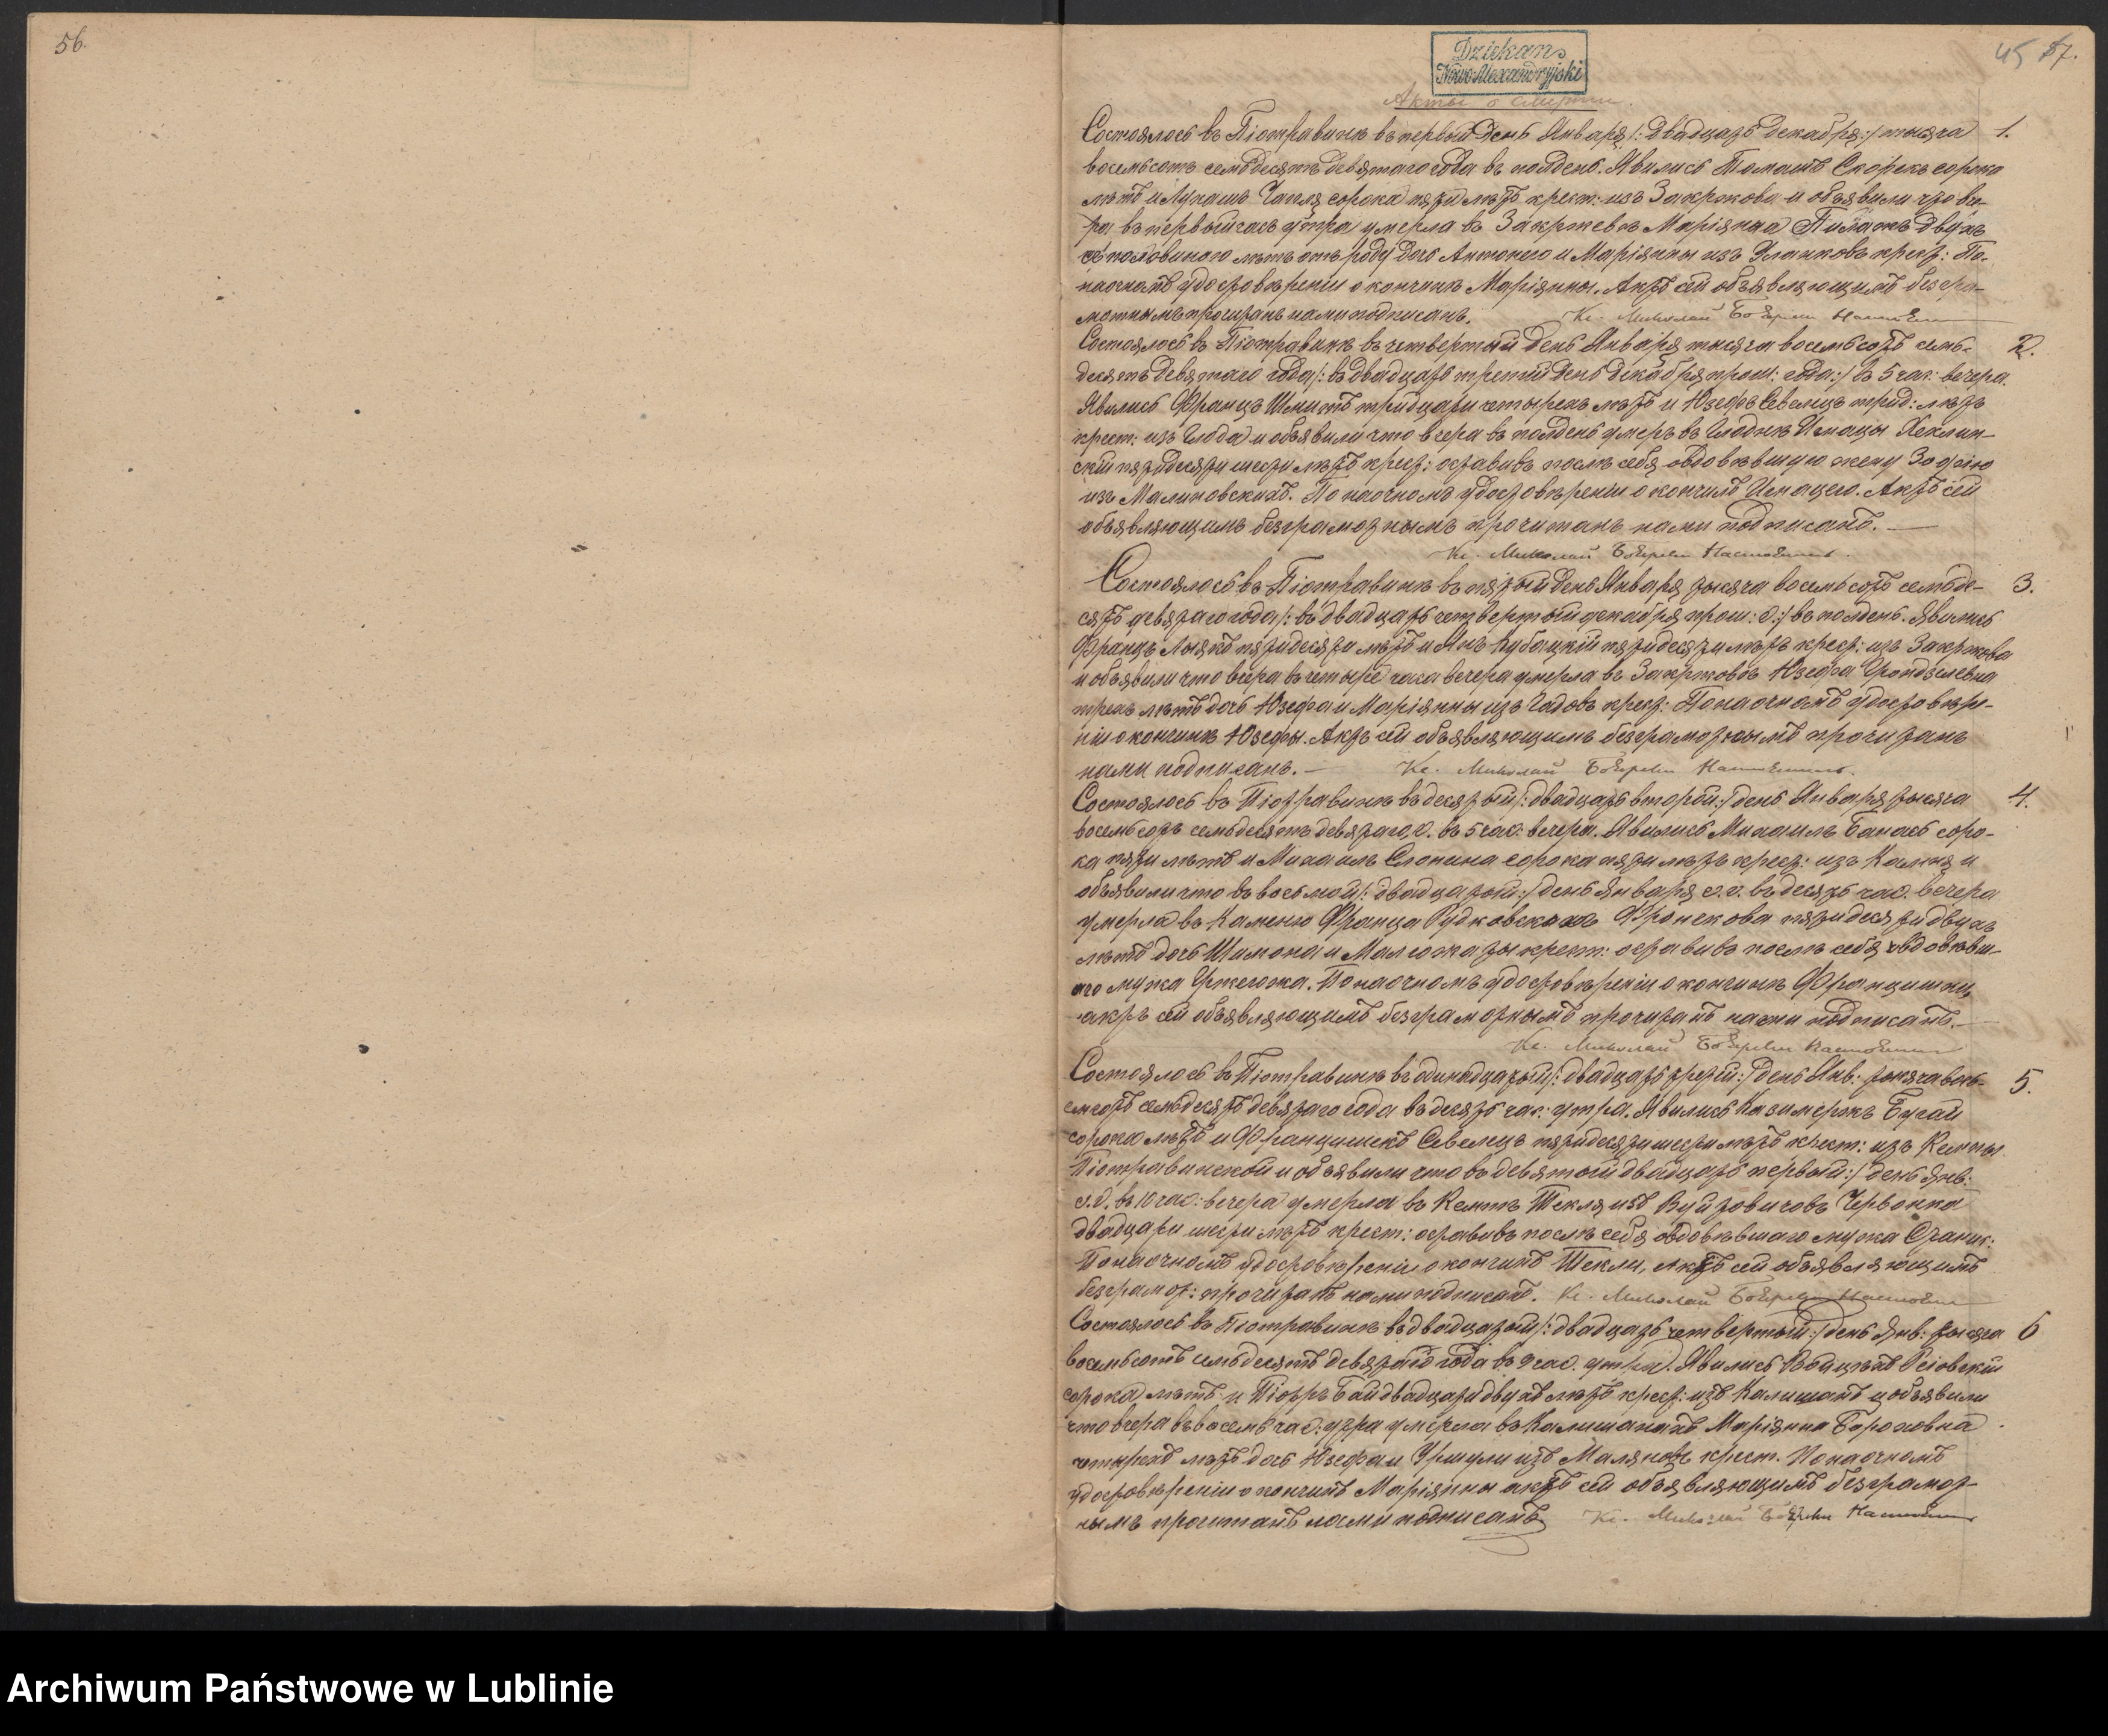 56.
Dziekan
NowoAlexandryjski
45 57.
Акты о смерти.
Состоялось въ Піотравинѣ въ первый день Января /: двадцать декабря :/ тысяча 1.
восемьсотъ семьдесятъ девятаго года въ полдень. Явились Томашъ Скорекъ сорока
лѣтъ и Лукашъ Чапля сорока пяти лѣтъ крест: изъ Закржова и объявили что вче-
ра въ первый часъ утра умерла въ Закржевѣ Маріянна двухъ
съ половиною лѣтъ отъ роду дочь Антонего и Маріянны изъ крест: По
наочномъ удостовѣреніи о кончинѣ Маріянны. Актъ сей объявляющимъ безгра-
мотнымъ прочитанъ нами подписанъ. Кс. Миколай
Состоялось въ Піотравинѣ въ четвертый день Января тысяча восемьсотъ семь- 2.
десятъ девятаго года /: въ двадцать третій день декабря прош: года :/ въ 5 час: вечера.
Явились Францъ Шмитъ тридцати четырехъ лѣтъ и Юзефъ Севелецъ трид: лѣтъ
крест: изъ Клода и объявили что вчера въ полдень умеръ въ Клоднѣ Игнацы
скій пятидесяти шести лѣтъ крест: оставивъ послѣ себя овдовѣвшую жену Зофію
изъ Малиновскихъ. По наочномъ удостовѣреніи о кончинѣ Игнацего. Актъ сей
объявляющимъ безграмотнымъ прочитанъ нами подписанъ.
Кс. Миколай
Состоялось въ Піотравинѣ въ пятый день Января тысяча восемьсотъ семьде- 3.
сятъ девятаго года /: въ двадцать четвертый декабря прош: г :/ въ полдень. Явились
Францъ Лысякъ пятидесяти лѣтъ и Янъ Кубацкій пятидесяти лѣтъ крест: изъ Закржова
и объявили что вчера въ четыре часа вечера умерла въ Закржовѣ Юзефа
трехъ лѣтъ дочь Юзефа и Маріянны изъ Гадовъ крест: По наочномъ удостовѣре-
ніи о кончинѣ Юзефы. Актъ сей объявляющимъ безграмотнымъ прочитанъ
нами подписанъ. Кс. Миколай
Состоялось въ Піотравинѣ въ десятый /: двадцать второй :/ день Января тысяча 4.
восемьсотъ семьдесятъ девятаго г. въ 5 час: вечера. Явились Михаилъ Банась соро-
ка пяти лѣтъ и Михаилъ Слонина сорока пяти лѣтъ крест: изъ Каменя и
объявили что въ восьмой /: двадцатый :/ день Января с.г. въ десять час. вечера
умерла въ Каменю Франца Рудковскихъ пятидесяти двухъ
лѣтъ дочь Шимона и Малгожаты крест: оставивъ послѣ себя овдовѣвш-
аго мужа Гржегожа. По наочномъ удостовѣреніи о кончинѣ Францишки,
актъ сей объявляющимъ безграмотнымъ прочитанъ нами подписанъ.
Кс. Миколай
Состоялось въ Піотравинѣ въ одинадцатый /: двадцать третій :/ день Янв: тысяча вось- 5.
емсотъ семьдесятъ девятаго года въ десять час: утра. Явились Казимержъ Бугай
сорока лѣтъ и Францишекъ Севелецъ пятидесяти шести лѣтъ крест: изъ Кемпы
Піотравинской и объявили что въ девятый двадцать первый :/ день Янв:
с.г. въ 10 час: вечера умерла въ Кемпѣ Текля изъ Червонка
двадцати шести лѣтъ крест: оставивъ послѣ себя овдовѣвшаго мужа
По наочномъ удостовѣреніи о кончинѣ Текли, актъ сей объявляющимъ
безграмот: прочитанъ нами подписанъ. Кс. Миколай
Состоялось въ Піотравинѣ въ двадцатый /: двадцать четвертый :/ день Янв: тысяча 6
восемьсотъ семьдесятъ девятаго года въ 9 час. утра. Явились
сорока лѣтъ и Піотръ Бай двадцати двухъ лѣтъ крест: изъ Калишанъ и объявили
что вчера въ восемь час: утра умерла въ Калишанахъ Маріянна
четырехъ лѣтъ дочь Юзефа и Уршули изъ крест. По наочномъ
удостовѣреніи о кончинѣ Маріянны актъ сей объявляющимъ безграмот-
нымъ прочитанъ нами подписанъ Кс. Миколай
Archiwum Państwowe w Lublinie